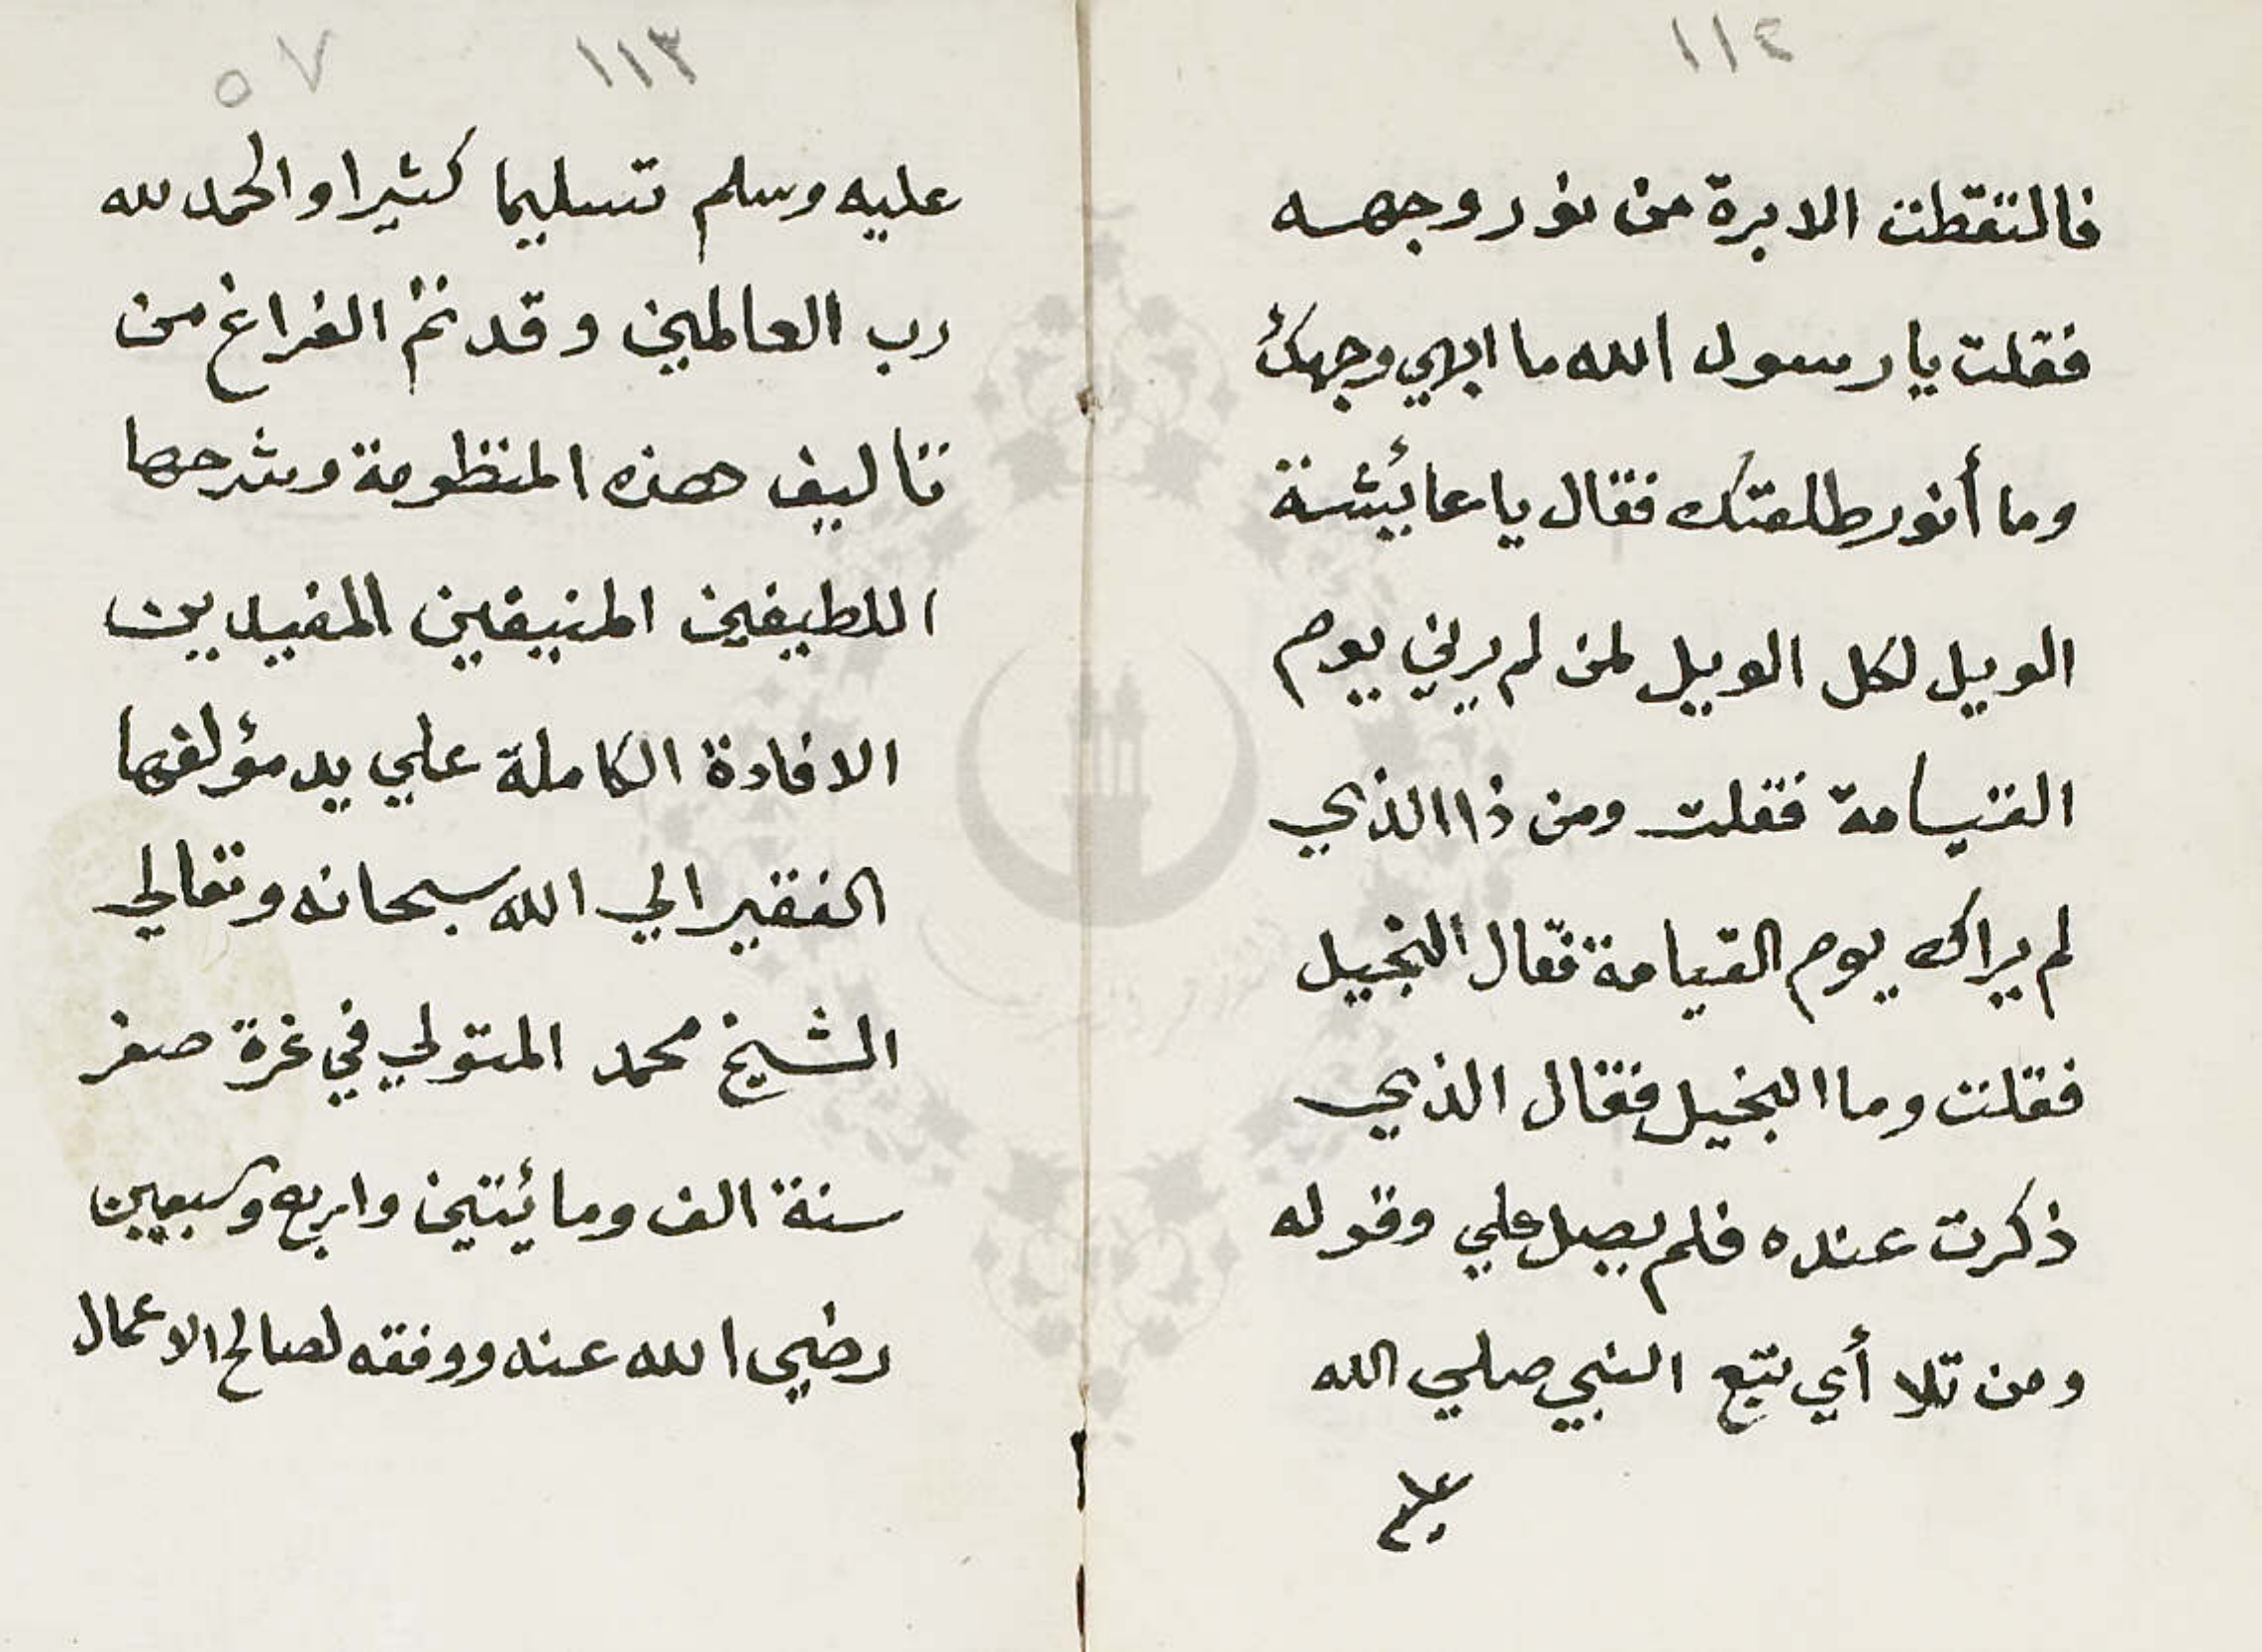 ١١٤
فالتقطت الابرة من نور وجهه
فقلت يا رسول الله ما ابهي وجهك
وما أنور طلعتك فقال يا عائشة
الويل لكل الويل لمن لم يرني يوم
القيامة فقلت ومن ذا الذي
لم يراك يوم القيامة فقال البخيل
فقلت وما البخيل فقال الذي
ذكرت عنده فلم يصل علي وقوله
ومن تلا أي تتبع النبي صلي الله
١١٣
٥٧
عليه وسلم تسليما كثيرا والحمد لله
رب العالمين وقد تم الفراغ من
تاليف هذه المنظومة وشرحها
اللطيفين المنيفين المفيدين
الافادة الكاملة علي يد مؤلفها
الفقير الي الله سبحانه وتعالي
الشيخ محمد المتولي في غرة صفر
سنة الف ومائيتين واربع وسبعين
رضي الله عنه ووفقه لصالح الاعمال